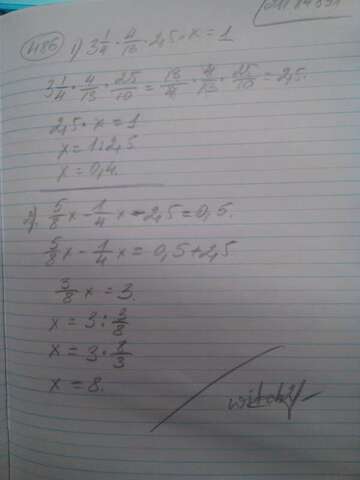 486 1) 3 1/4 · 4/13 · 2,5 · x = 1
3 1/4 · 4/13 · 25/10 = 13/4 · 4/13 · 25/10 = 2,5.
2,5 · x = 1
x = 1 : 2,5.
x = 0,4.
2). 5/8 x - 1/4 x - 2,5 = 0,5.
5/8 x - 1/4 x = 0,5 + 2,5
3/8 x = 3.
x = 3 : 3/8
x = 3 · 8/3
x = 8.